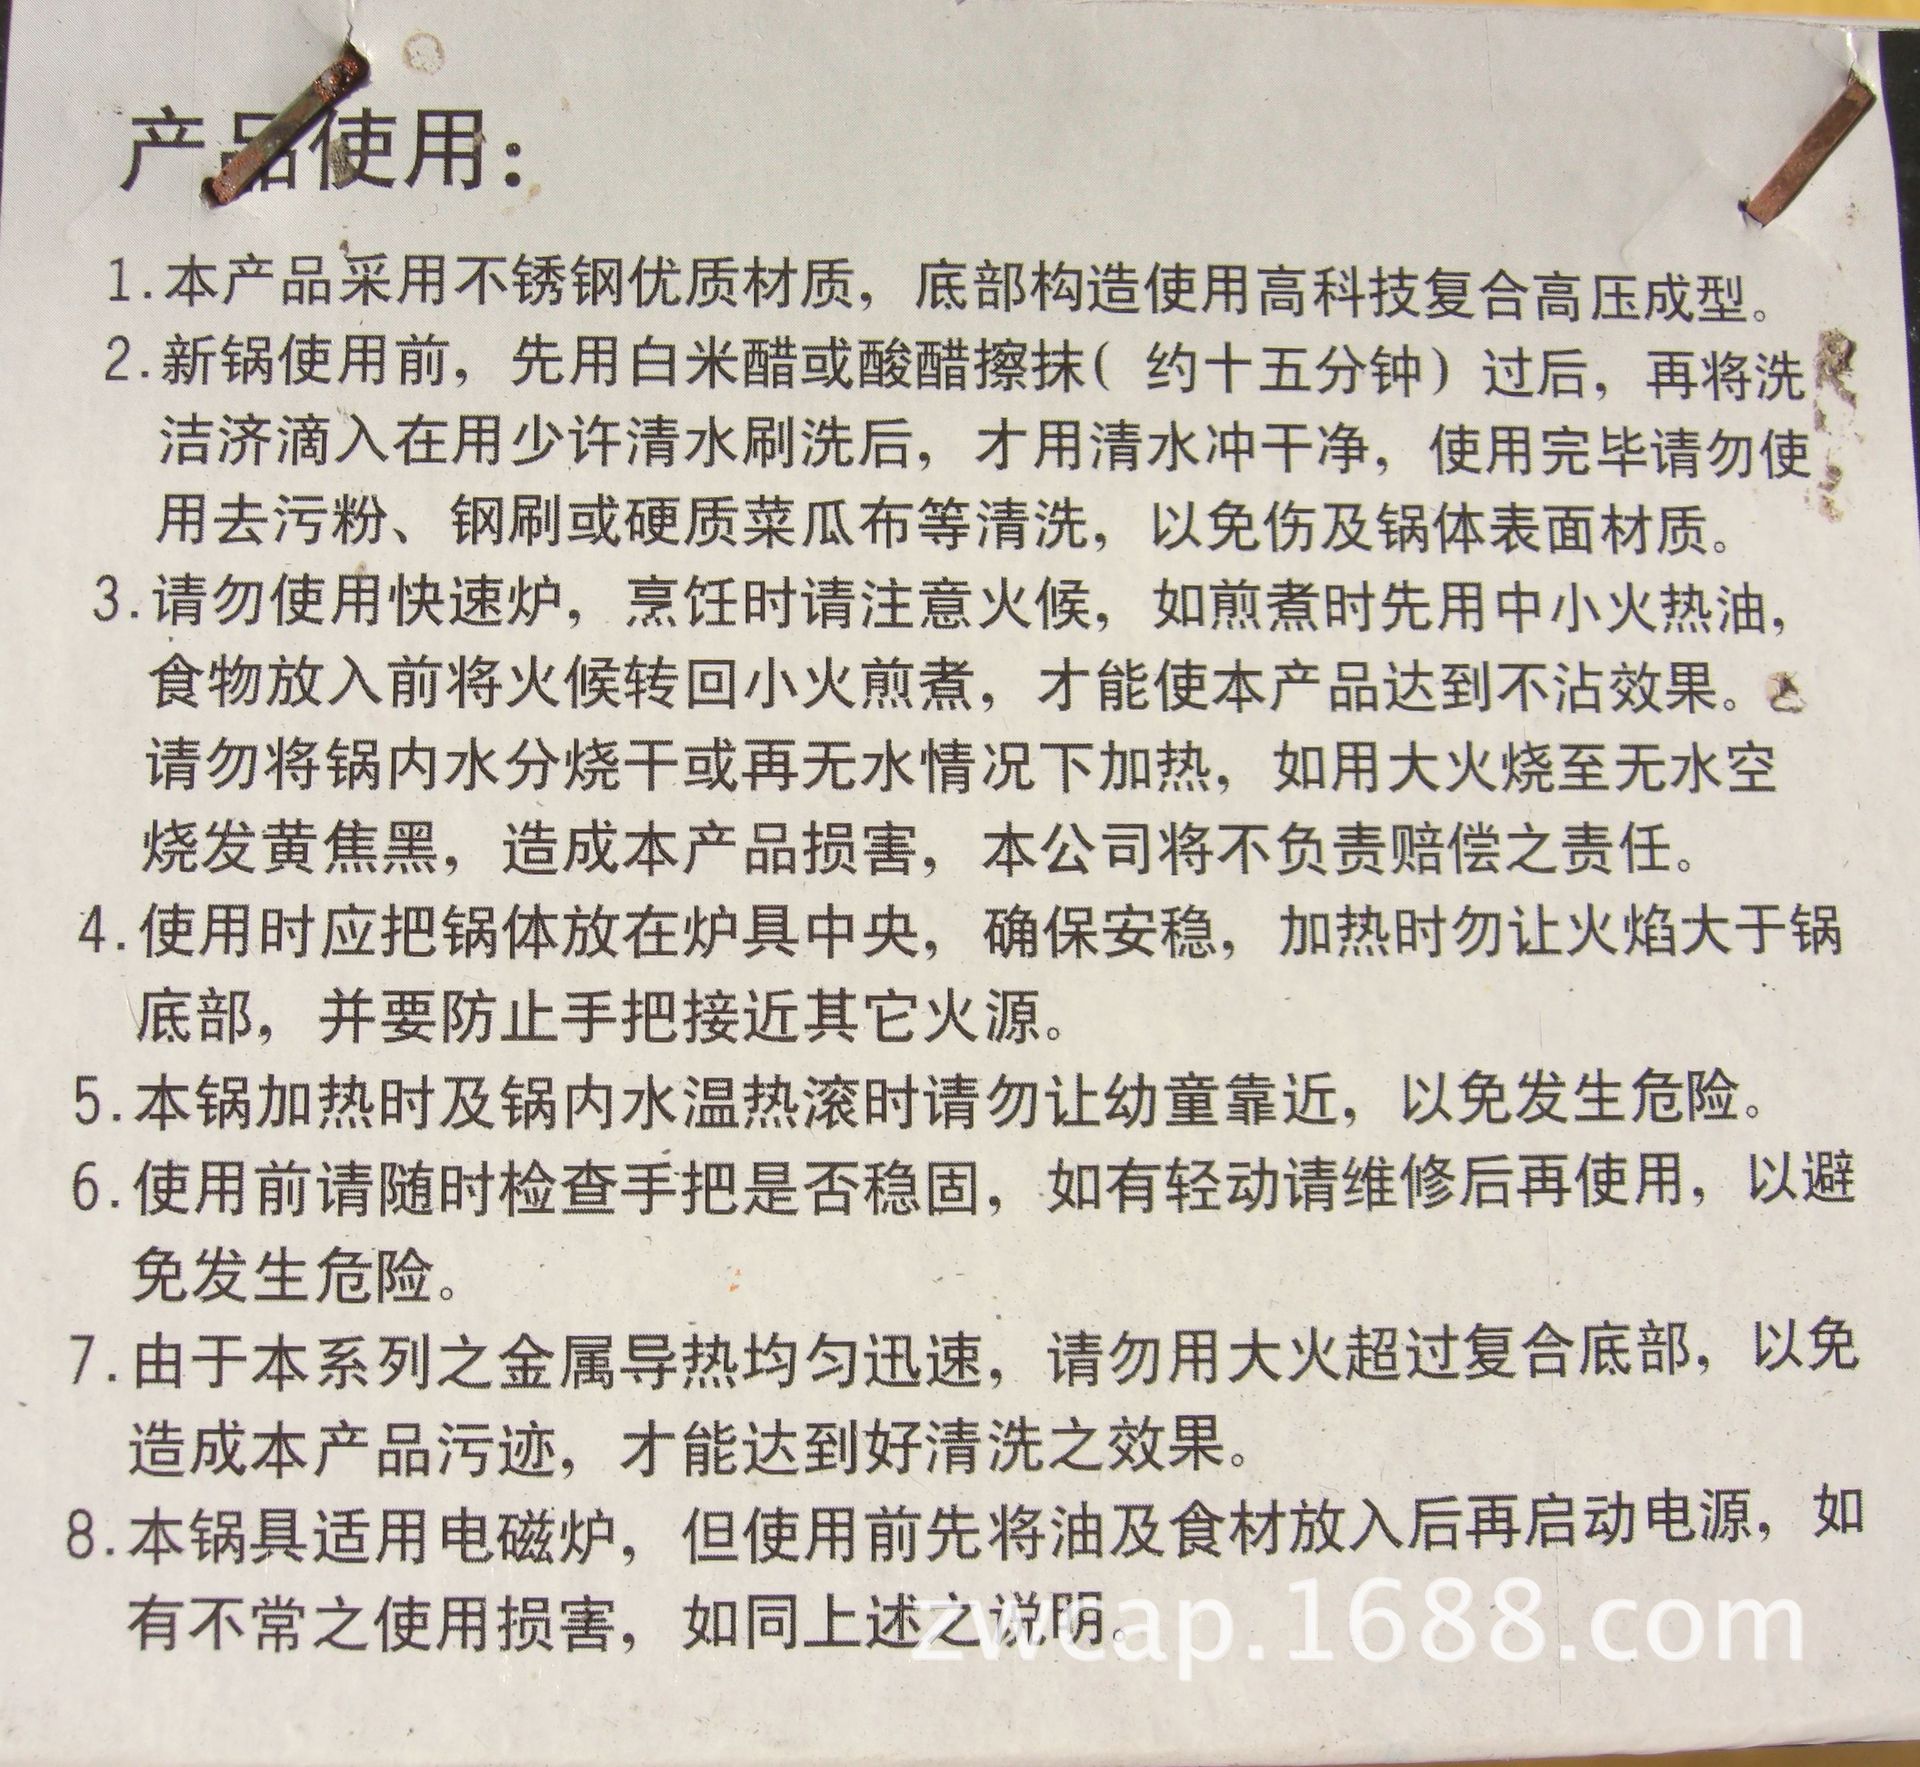 产品使用：
1.本产品采用不锈钢优质材质，底部构造使用高科技复合高压成型。
2.新锅使用前，先用白米醋或酸醋擦抹(约十五分钟)过后，再将洗
洁济滴入在用少许清水刷洗后，才用清水冲干净，使用完毕请勿使
用去污粉、钢刷或硬质菜瓜布等清洗，以免伤及锅体表面材质。
3.请勿使用快速炉，烹饪时请注意火候，如煎煮时先用中小火热油，
食物放入前将火候转回小火煎煮，才能使本产品达到不沾效果。
请勿将锅内水分烧干或再无水情况下加热，如用大火烧至无水空
烧发黄焦黑，造成本产品损害，本公司将不负责赔偿之责任。
4.使用时应把锅体放在炉具中央，确保安稳，加热时勿让火焰大于锅
底部，并要防止手把接近其它火源。
5.本锅加热时及锅内水温热滚时请勿让幼童靠近，以免发生危险。
6.使用前请随时检查手把是否稳固，如有轻动请维修后再使用，以避
免发生危险。
7.由于本系列之金属导热均匀迅速，请勿用大火超过复合底部，以免
造成本产品污迹，才能达到好清洗之效果。
8.本锅具适用电磁炉，但使用前先将油及食材放入后再启动电源，如
有不常之使用损害，如同上述之说明。
zwcap.1688.com